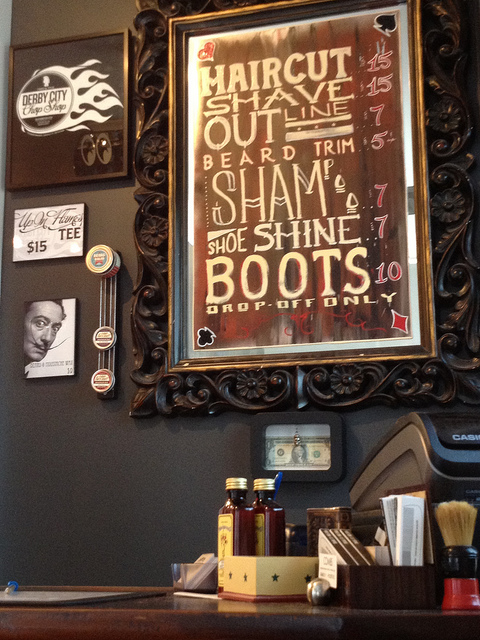 HAIRCUT 15
SHAVE 15
OUTLINE 7
BEARD TRIM 5
SHAMP. 7
SHOE SHINE 7
BOOTS 10
DROP-OFF ONLY
DERBY CITY
Chop Shop
Up In Flames
TEE
$15
CASIO